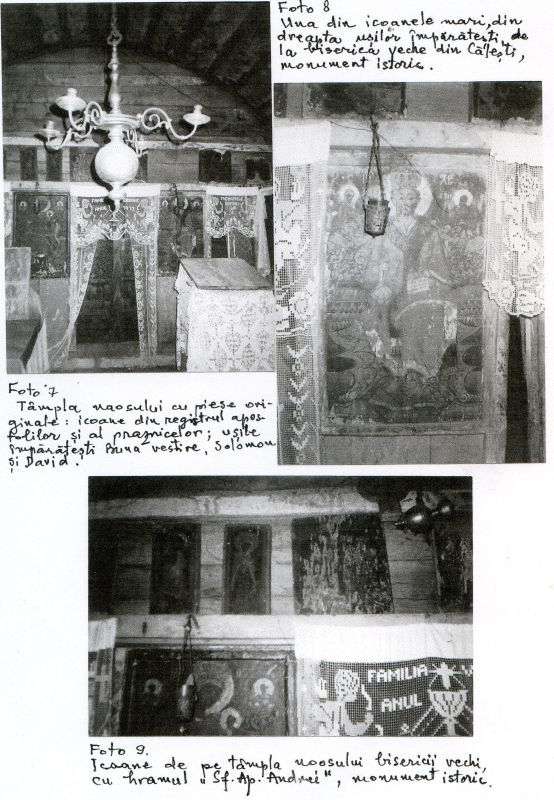 Foto 8
Una din icoanele mari, din
dreapta ușilor împărătești, de
la biserica veche din Cǎlești,
monument istoric.
FAMILIA
ANUL
Foto 7
Tâmpla naosului cu piese ori-
ginale: icoane din registrul apos-
tolilor și al praznicelor; ușile
împărătești Buna vestire, Solomon
și David.
FAMILIA
ANUL
Foto 9.
Icoane de pe tâmpla naosului bisericii vechi,
cu hramul „Sf. Ap. Andrei", monument istoric.